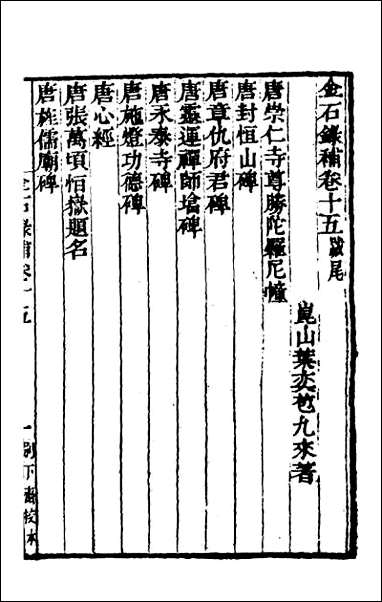 金石錄補卷十五 跋尾
崑山葉奕苞九來著
唐崇仁寺尊勝陀羅尼幢
唐封恒山碑
唐章仇府君碑
唐靈運禪師塔碑
唐永泰寺碑
唐施燈功德碑
唐心經
唐張萬頃恒嶽題名
唐旌儒廟碑
金石錄補卷十五
一
別下齋校本